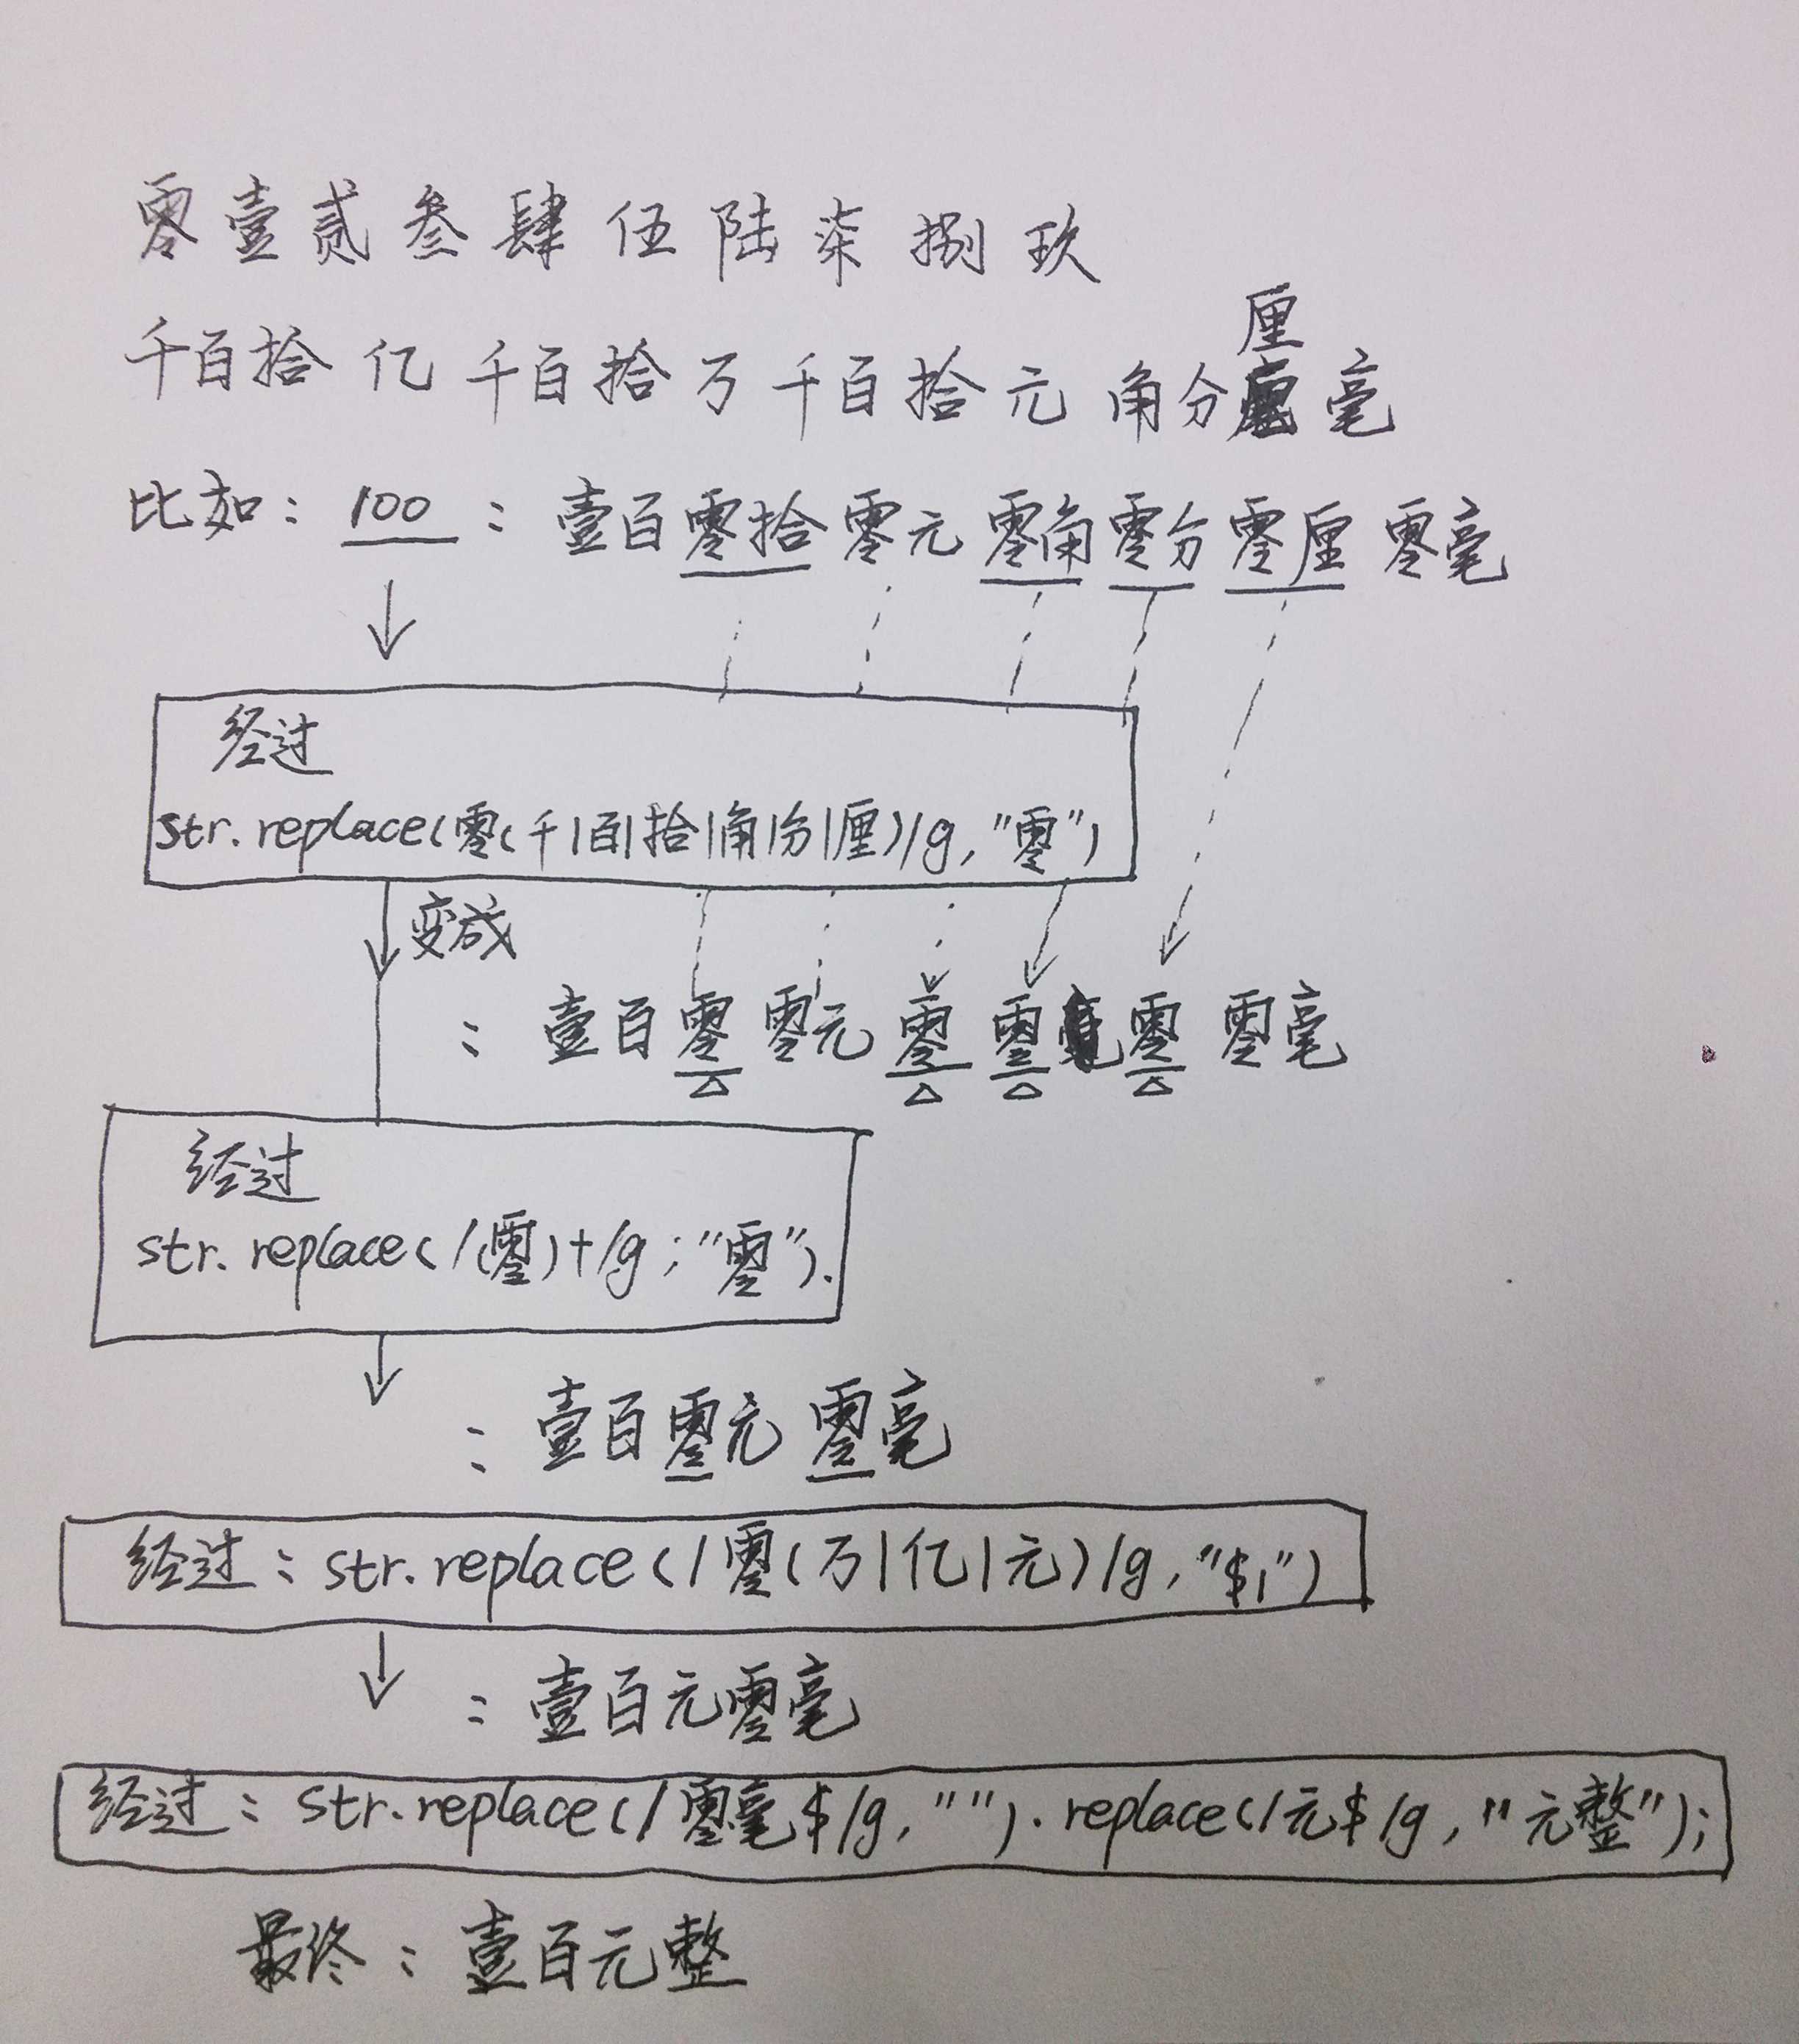 零壹贰叁肆伍陆柒捌玖
厘
千百拾亿千百拾万千百拾元角分毫
比如：100：壹百零拾零元零角零分零厘零毫
经过
str.replace(零(千|百|拾|角|分|厘)/g,"零")
变成
：壹百零零元零零零零毫
经过
str.replace(/(零)+/g;"零").
：壹百零元零毫
经过：str.replace(/零(万|亿|元)/g,"$1")
：壹百元零毫
经过：str.replace(/零毫$/g,"").replace(/元$/g,"元整");
最终：壹百元整